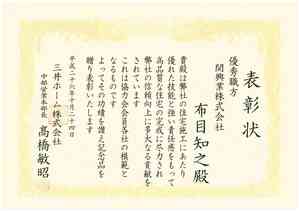 表彰状
優秀職方
関興業株式会社
布目知之殿
貴殿は弊社の住宅施工にあたり
優れた技能と強い責任感をもって
高品質な住宅の完成に尽力され
弊社の信頼向上に多大な貢献を
されています
これは協力会会員各社の模範と
なるものです
よってその功績を讃え記念品を
贈り表彰いたします
平成二十六年十月二十四日
三井ホーム株式会社
中部営業本部長
髙橋敏昭